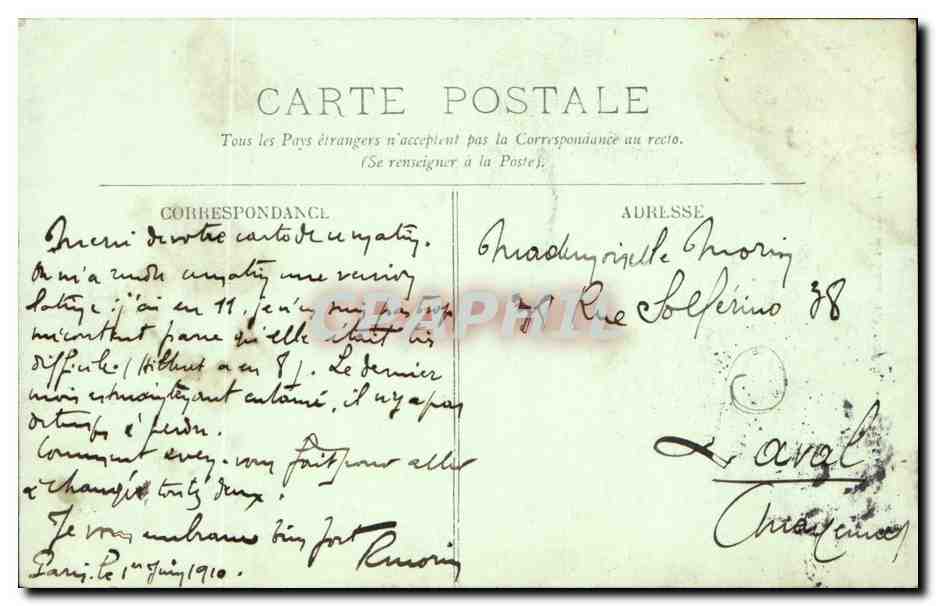 CARTE POSTALE
Tous les Pays étrangers n'acceptent pas la Correspondance au recto.
(Se renseigner à la Poste).
CORRESPONDANCE
Merci de votre carte de ce matin.
On m'a rendu ce matin une version
latine : j'ai eu 11, je n'en suis pas trop
mécontent parce qu'elle était très
difficile ( a eu 8). Le dernier
mois est maintenant entamé, il n'y a pas
de temps à perdre.
Comment avez-vous fait pour aller
à changé, toutes deux.
Je vous embrasse bien fort
RMorin
Paris, le 1er Juin 1910.
ADRESSE
Mademoiselle Morin
38 Rue Solférino 38
Laval
(Mayenne)
CPAPHIL